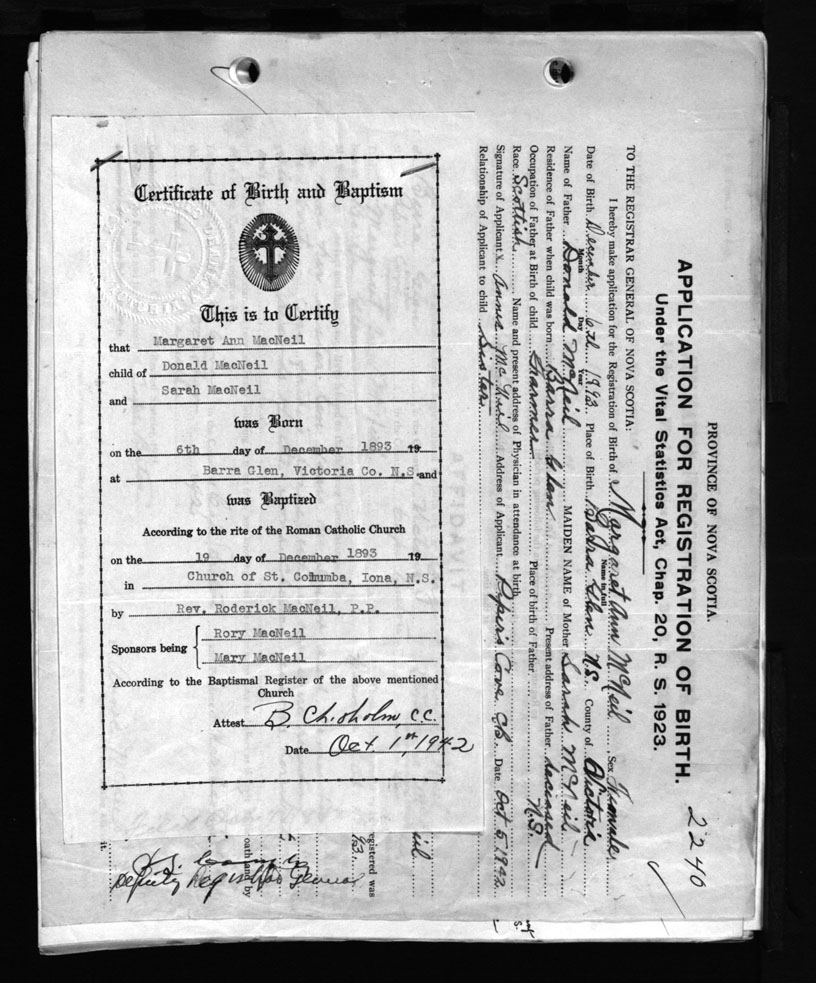 Certificate of Birth and Baptism
This is to Certify
that Margaret Ann MacNeil
child of Donald MacNeil
and Sarah MacNeil
was Born
on the 6th day of December 1893 19
at Barra Glen, Victoria Co. N.S. and
was Baptized
According to the rite of the Roman Catholic Church
on the 19 day of December 1893 19
in Church of St. Columba, Iona, N.S.
by Rev. Roderick MacNeil, P.P.
Sponsors being { Rory MacNeil
Mary MacNeil
According to the Baptismal Register of the above mentioned
Church
Attest B. Chisholm, C.C.
Date Oct 1st, 1942
PROVINCE OF NOVA SCOTIA.
APPLICATION FOR REGISTRATION OF BIRTH. 2240
Under the Vital Statistics Act, Chap. 20, R. S. 1923.
TO THE REGISTRAR GENERAL OF NOVA SCOTIA:
I hereby make application for the Registration of Birth of Margaret Ann McNeil, Sex Female
Name in full
Date of Birth December 6th 1893 Place of Birth Barra Glen N.S. County of Victoria
Month Day Year
Name of Father Donald McNeil MAIDEN NAME of Mother Sarah McNeil
Residence of Father when child was born Barra Glen Present address of Father deceased
Occupation of Father at Birth of child Farmer Place of birth of Father N.S.
Race Scottish Name and present address of Physician in attendance at birth
Signature of Applicant X Annie McNeil Address of Applicant Cove C.B. Date Oct 5 1942
Relationship of Applicant to child Sister
AFFIDAVI
eil
egistered was
93
oath and by
it.
Deputy Registrar General